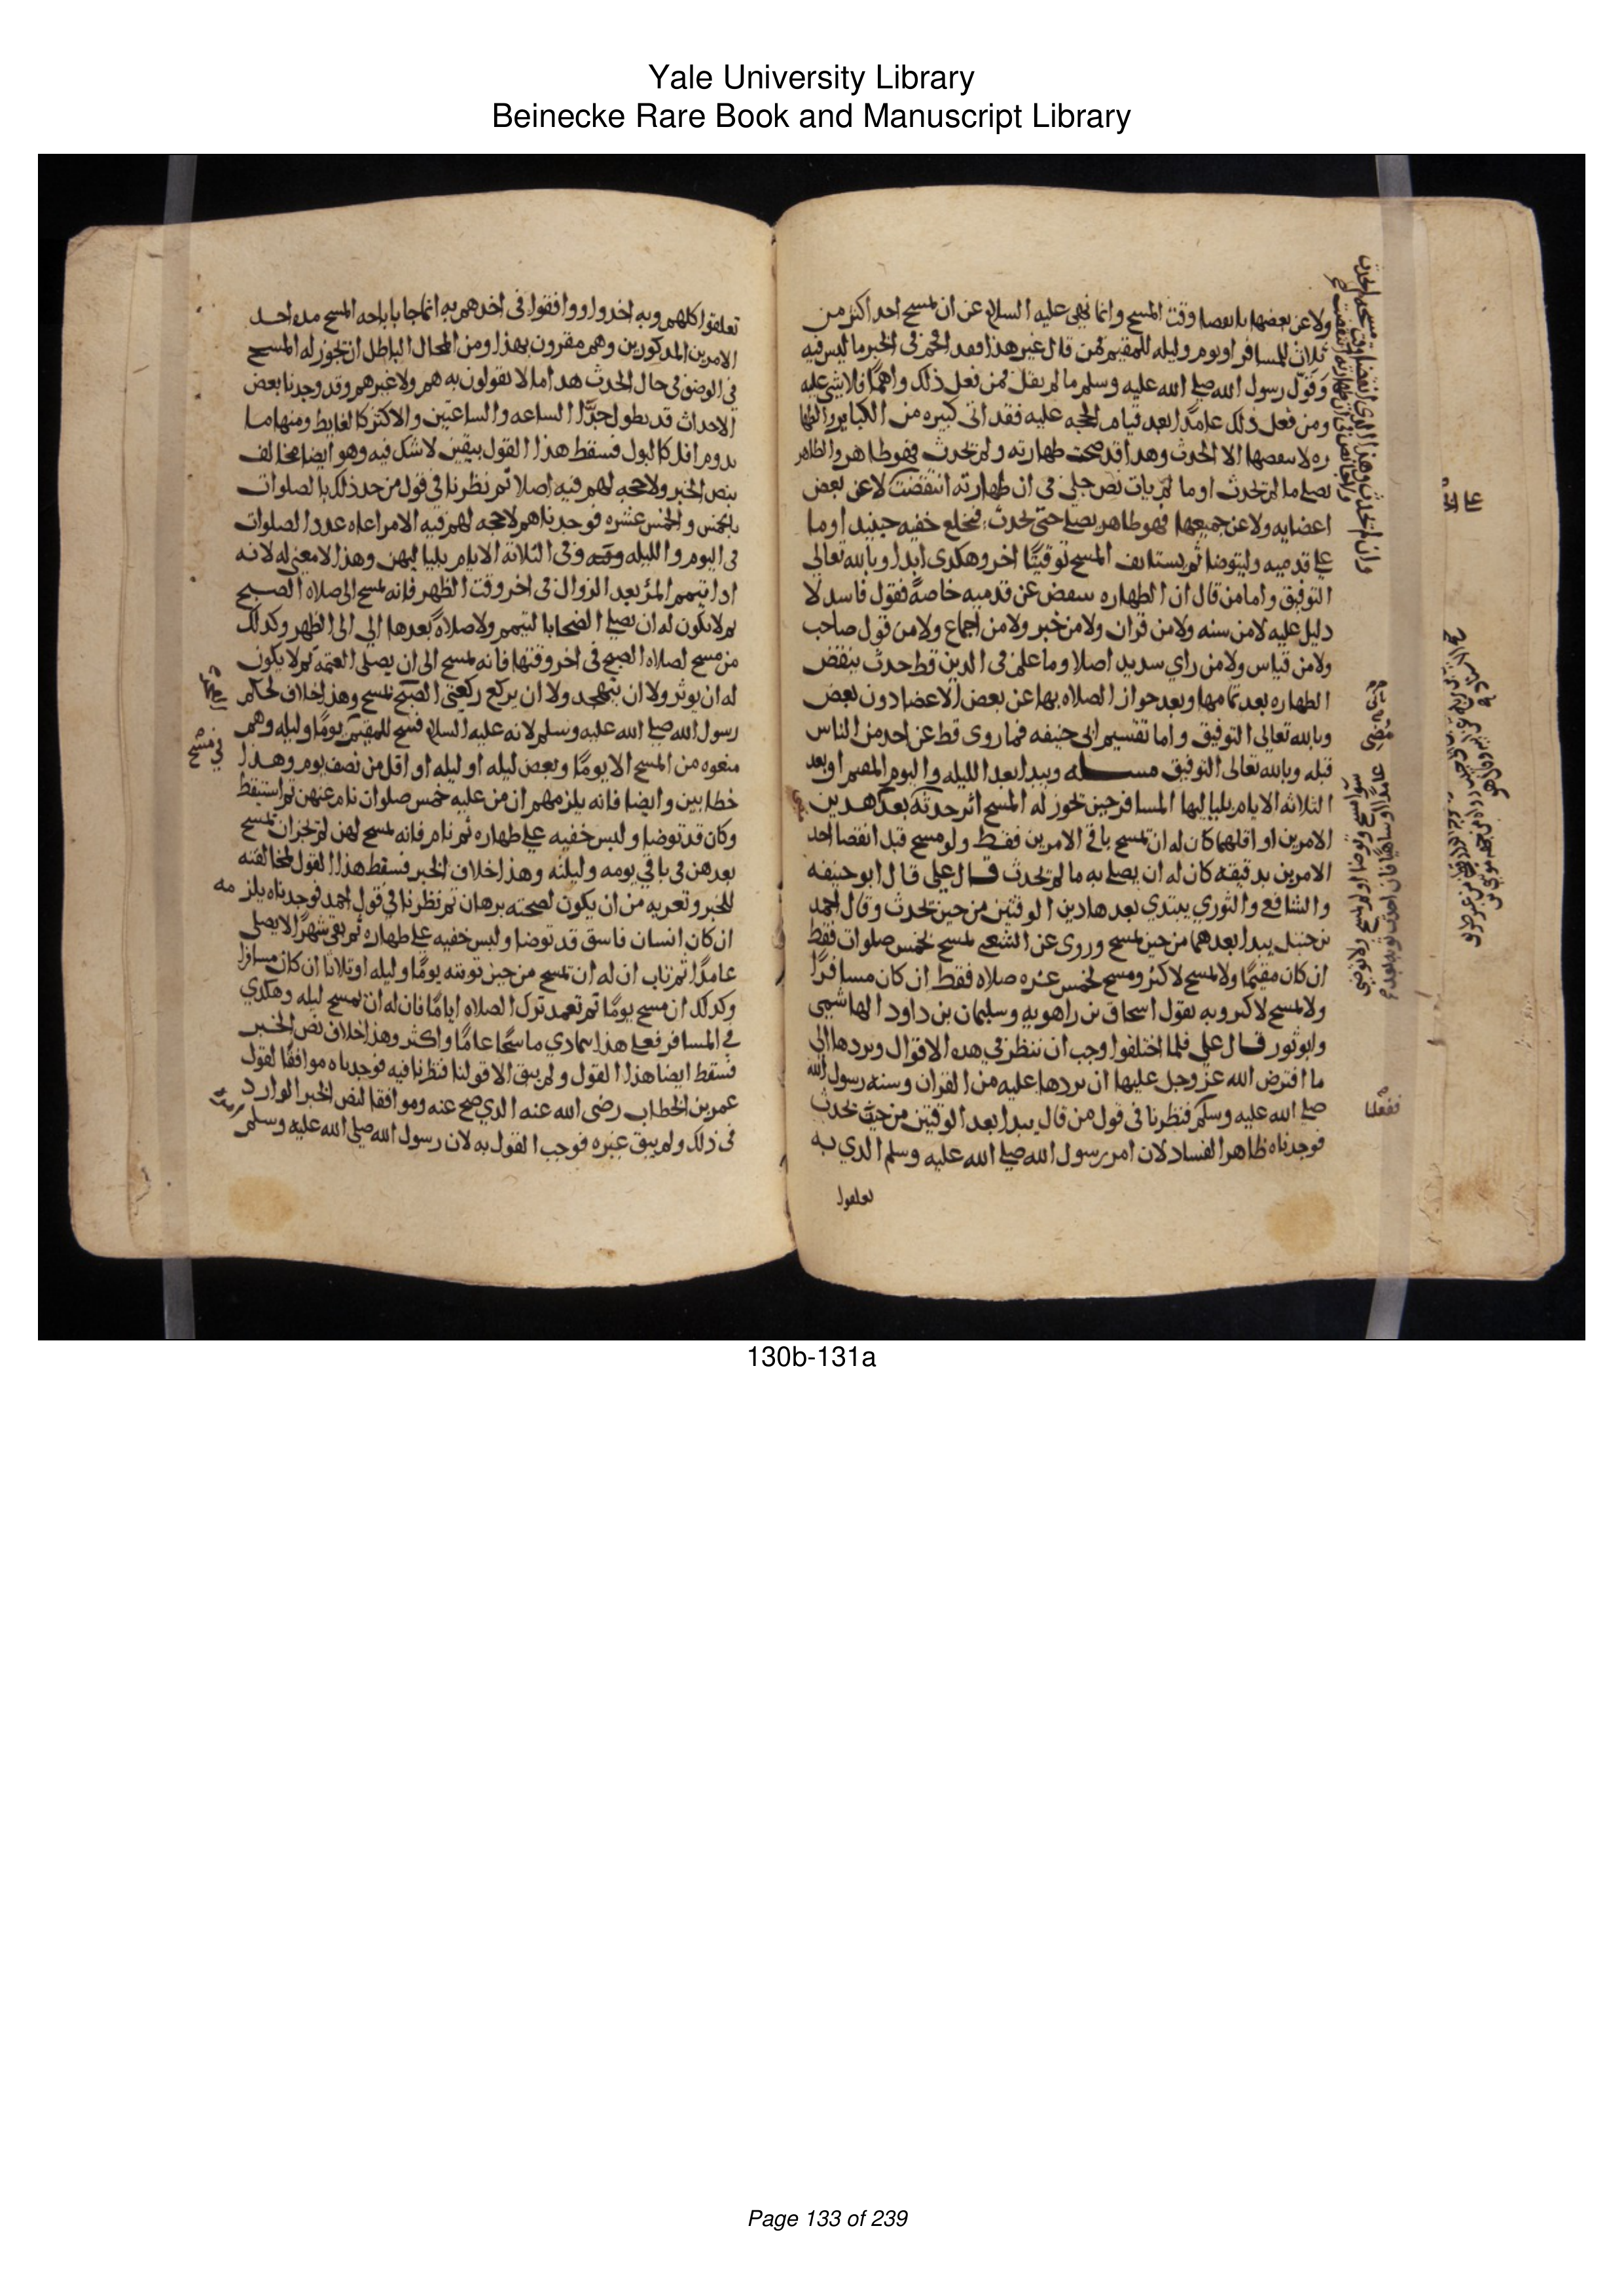 Yale University Library
Beinecke Rare Book and Manuscript Library
ولا عن بعضها بانقضا وقت المسح وانما نهى عليه السلام عن ان يمسح احد اكثر من
ثلاث للمسافر او يوم وليله للمقيم فمن قال غير هذا فقد اقحم في الخبر ما ليس فيه
وقول رسول الله صلى الله عليه وسلم ما لم يقل فمن فعل ذلك واهما فلا شي عليه
ومن فعل ذلك عامدا بعد قيام الحجه عليه فقد اتى كبيره من الكباير والطها
ره لا ينقضها الا الحدث وهذا قد صحت طهارته ولم يحدث فهو طاهر والطاهر
يصلي ما لم يحدث او ما لم يات نص جلي في ان طهارته انتقضت لا عن بعض
اعضايه ولا عن جميعها فهو طاهر يصلي حتى يحدث فيخلع خفيه حينيد او ما
على قدميه وليتوضا ثم يستانف المسح توقيتا اخر وهكدى ابدا وبالله تعالى
التوفيق واما من قال ان الطهاره تنتقض عن قدميه خاصة فقول فاسد لا
دليل عليه لا من سنه ولا من قران ولا من خبر ولا من اجماع ولا من قول صاحب
ولا من قياس ولا من راي سديد اصلا وما علم في الدين قط حدث ينقض
الطهاره بعد تمامها وبعد جواز الصلاه بها عن بعض الاعضا دون بعض
وبالله تعالى التوفيق واما تقسيم ابي حنيفه فما روى قط عن احد من الناس
قبله وبالله تعالى التوفيق مسله ويبدا بعد الليله واليوم المقيم او بعد
الثلاثه الايام بلياليها المسافر حين يجوز له المسح اثر حدثه بعد هدين
الامرين او اقلهما كان له ان يمسح باقي الامرين فقط ولو مسح قبل انقضا احد
الامرين بدقيقه كان له ان يصلي به ما لم يحدث قال علي قال ابو حنيفه
والشافعي والثوري يبتدي بعد هادين الوقتين من حين يحدث وقال احمد
بن حنبل يبدا بعدهما من حين يمسح وروى عن الشعبي يمسح لخمس صلوات فقط
ان كان مقيما ولا يمسح لاكثر ومسح لخمس عشره صلاه فقط ان كان مسافرا
ولا يمسح لاكثر وبه يقول اسحاق بن راهويه وسليمان بن داود الهاشمي
وابو ثور قال علي فلما اختلفوا وجب ان ننظر في هده الاقوال ونردها الى
ما افترض الله عز وجل عليها ان نردها عليه من القران وسنه رسول الله
صلى الله عليه وسلم فنظرنا في قول من قال يبدا بعد الوقتين من حيث يحدث
فوجدناه ظاهر الفساد لان امر رسول الله صلى الله عليه وسلم الدي به
تعلقوا
ففعلنا
تعلقوا كلهم وبه اخدوا ووافقوا في اخدهم به انما جا باباحه المسح مده احد
الامرين المدكورين وهم مقرون بهذا ومن المحال الباطل ان يجوز له المسح
في الوضو في حال الحدث هدا ما لا يقولون به هم ولا غيرهم وقد وجدنا بعض
الاحداث قد يطول جدا الساعه والساعتين والاكثر كالغايط ومنها ما
يدوم اقل كالبول فسقط هذا القول بيقين لا شك فيه وهو ايضا مخالف
بنص الخبر ولا حجه لهم فيه اصلا ثم نظرنا في قول من حد ذلك بالصلوات
بالخمس والخمس عشره فوجدناهم لا حجه لهم فيه الا مراعاه عدد الصلوات
في اليوم والليله وفي الثلاثة الايام بلياليهن وهذا لا معنى له لانه
ادا تيمم المر بعد الزوال في اخر وقت الظهر فانه يمسح الى صلاه الصبح
ثم لا يكون له ان يصلي الضحا بالتيمم ولا صلاة بعدها الى الى الظهر وكدلك
من مسح لصلاه الصبح في اخر وقتها فانه يمسح الى ان يصلي العتمة ثم لا يكون
له ان يوتر ولا ان يتهجد ولا ان يركع ركعتي الصبح بمسح وهذا خلاف لحكم
رسول الله صلى الله عليه وسلم لانه عليه السلام فسح للمقيم يوما وليله وهم
منعوه من المسح الا يوما وبعض ليله او ليله او اقل من نصف يوم وهذا
خطا بين وايضا فانه يلزمهم ان من عليه خمس صلوات نام عنهن ثم استيقظ
وكان قد توضا ولبس خفيه على طهاره ثم نام فانه يمسح لهن ثم لم يجز ان يمسح
بعدهن في باقي يومه وليلته وهذا خلاف الخبر فسقط هذا القول لمخالفته
للخبر وتعريه من ان يكون لصحته برهان ثم نظرنا في قول احمد فوجدناه يلزمه
ان كان انسان فاسق قد توضا ولبس خفيه على طهاره ثم بقي شهرا لا يصلي
عامدا ثم تاب ان له ان يمسح من حين توبته يوما وليله او ثلاثا ان كان مسافرا
وكدلك ان مسح يوما ثم تعمد ترك الصلاه اياما فان له ان يمسح ليله وهكدي
في المسافر فعلى هذا يتمادي ماسحا عاما واكثر وهذا خلاف نص الخبر
فسقط ايضا هذا القول ولم يبق الا قولنا فنظرنا فيه فوجدناه موافقا لقول
عمر بن الخطاب رضى الله عنه الدي صح عنه وموافقا لنص الخبر الوارد
في ذلك ولم يبق غيره فوجب القول به لان رسول الله صلى الله عليه وسلم
130b-131a
Page 133 of 239